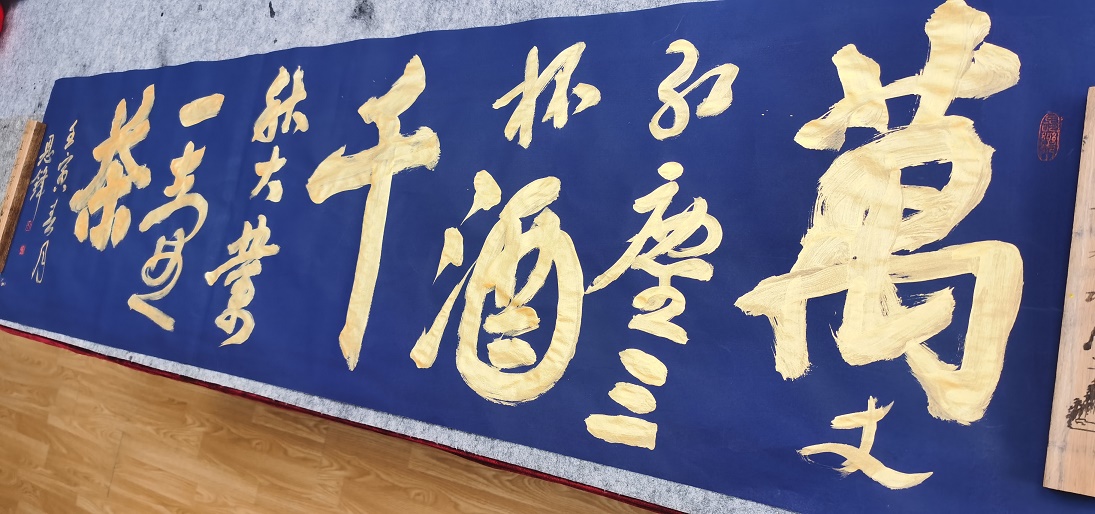 萬丈
紅塵三
杯酒
千
秋大業
一壺
茶
壬寅春月